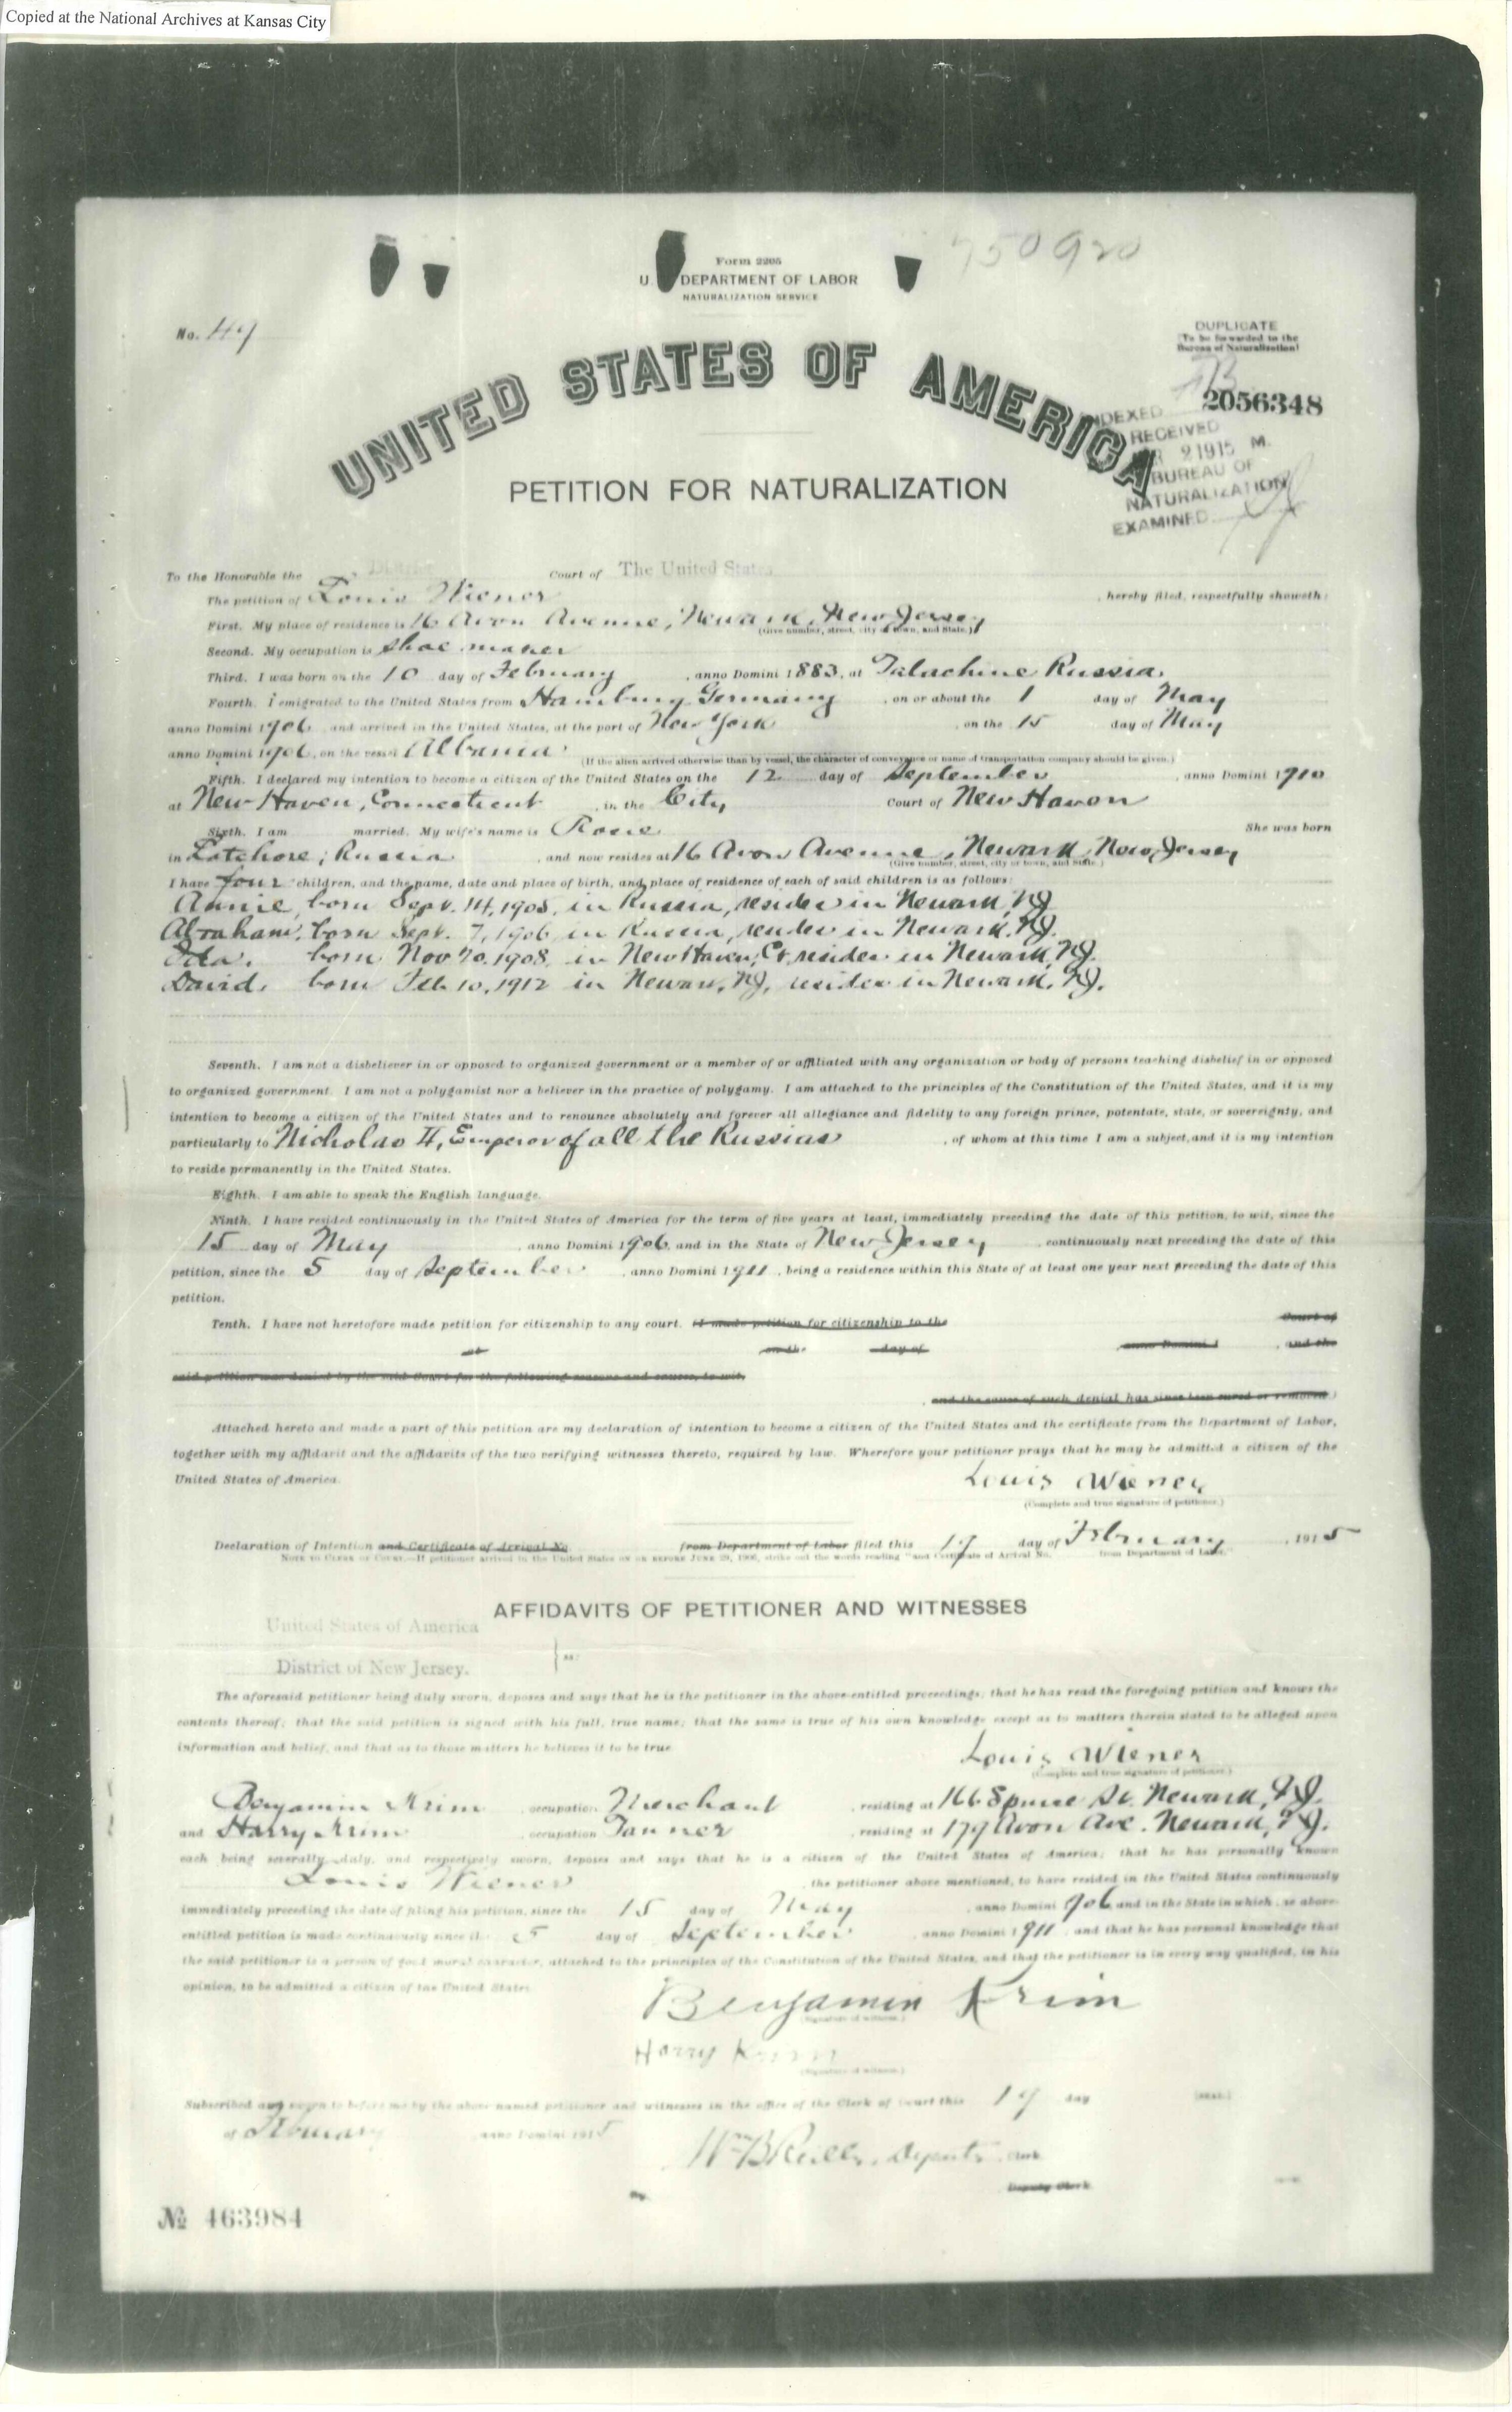 Copied at the National Archives at Kansas City
750920
Form 2205
U. DEPARTMENT OF LABOR
NATURALIZATION SERVICE
No. 49
DUPLICATE
(To be forwarded to the
Bureau of Naturalization)
2056348
UNITED STATES OF AMERICA
INDEXED
RECEIVED
2 1915 M.
BUREAU OF
NATURALIZATION
EXAMINED
PETITION FOR NATURALIZATION
To the Honorable the District Court of The United States
The petition of Louis Wiener , hereby filed, respectfully showeth:
First. My place of residence is 16 Avon Avenue, Newark, New Jersey
(Give number, street, city or town, and State.)
Second. My occupation is shoe maker
Third. I was born on the 10 day of February , anno Domini 1883, at Talachine Russia
Fourth. I emigrated to the United States from Hamburg Germany , on or about the 1 day of May
anno Domini 1906, and arrived in the United States, at the port of New York , on the 15 day of May
anno Domini 1906, on the vessel Albania
(If the alien arrived otherwise than by vessel, the character of conveyance or name of transportation company should be given.)
Fifth. I declared my intention to become a citizen of the United States on the 12 day of September , anno Domini 1910
at New Haven, Connecticut , in the City Court of New Haven
Sixth. I am married. My wife's name is Rosie She was born
in Latchore, Russia , and now resides at 16 Avon Avenue, Newark, New Jersey
(Give number, street, city or town, and State.)
I have four children, and the name, date and place of birth, and place of residence of each of said children is as follows:
Annie, born Sept. 14, 1905, in Russia, resides in Newark, NJ
Abraham, born Sept. 7, 1906, in Russia, resides in Newark. NJ.
Ida. born Nov 20, 1908, in New Haven, Ct, resides in Newark, NJ.
David, born Feb 10, 1912 in Newark, NJ, resides in Newark, NJ.
Seventh. I am not a disbeliever in or opposed to organized government or a member of or affiliated with any organization or body of persons teaching disbelief in or opposed
to organized government. I am not a polygamist nor a believer in the practice of polygamy. I am attached to the principles of the Constitution of the United States, and it is my
intention to become a citizen of the United States and to renounce absolutely and forever all allegiance and fidelity to any foreign prince, potentate, state, or sovereignty, and
particularly to Nicholas II, Emperor of all the Russias , of whom at this time I am a subject, and it is my intention
to reside permanently in the United States.
Eighth. I am able to speak the English language.
Ninth. I have resided continuously in the United States of America for the term of five years at least, immediately preceding the date of this petition, to wit, since the
15 day of May , anno Domini 1906, and in the State of New Jersey , continuously next preceding the date of this
petition, since the 5 day of September , anno Domini 1911, being a residence within this State of at least one year next preceding the date of this
petition.
Tenth. I have not heretofore made petition for citizenship to any court. (I made petition for citizenship to the Court of
at on the day of anno Domini 1 , and the
said petition was denied by the said Court for the following reasons and causes, to wit,
and the cause of such denial has since been cured or removed.)
Attached hereto and made a part of this petition are my declaration of intention to become a citizen of the United States and the certificate from the Department of Labor,
together with my affidavit and the affidavits of the two verifying witnesses thereto, required by law. Wherefore your petitioner prays that he may be admitted a citizen of the
United States of America.
Louis Wiener
(Complete and true signature of petitioner.)
Declaration of Intention and Certificate of Arrival No. from Department of Labor filed this 19 day of February , 1915
NOTE TO CLERK OF COURT.—If petitioner arrived in the United States ON OR BEFORE JUNE 29, 1906, strike out the words reading "and Certificate of Arrival No. from Department of Labor."
AFFIDAVITS OF PETITIONER AND WITNESSES
United States of America
District of New Jersey. } ss:
The aforesaid petitioner being duly sworn, deposes and says that he is the petitioner in the above-entitled proceedings; that he has read the foregoing petition and knows the
contents thereof; that the said petition is signed with his full, true name; that the same is true of his own knowledge except as to matters therein stated to be alleged upon
information and belief, and that as to those matters he believes it to be true.
Louis Wiener
(Complete and true signature of petitioner.)
Benjamin Krim , occupation Merchant , residing at 166 Spruce St. Newark, NJ.
and Harry Krim , occupation Tanner , residing at 179 Avon Ave. Newark, NJ.
each being severally, duly, and respectively sworn, deposes and says that he is a citizen of the United States of America; that he has personally known
Louis Wiener , the petitioner above mentioned, to have resided in the United States continuously
immediately preceding the date of filing his petition, since the 15 day of May , anno Domini 1906 and in the State in which the above-
entitled petition is made continuously since the 5 day of September , anno Domini 1911, and that he has personal knowledge that
the said petitioner is a person of good moral character, attached to the principles of the Constitution of the United States, and that the petitioner is in every way qualified, in his
opinion, to be admitted a citizen of the United States.
Benjamin Krim
(Signature of witness.)
Harry Krim
(Signature of witness.)
Subscribed and sworn to before me by the above-named petitioner and witnesses in the office of the Clerk of Court this 19 day [SEAL.]
of February , anno Domini 1915
Deputy Clerk
By Deputy Clerk
№ 463984